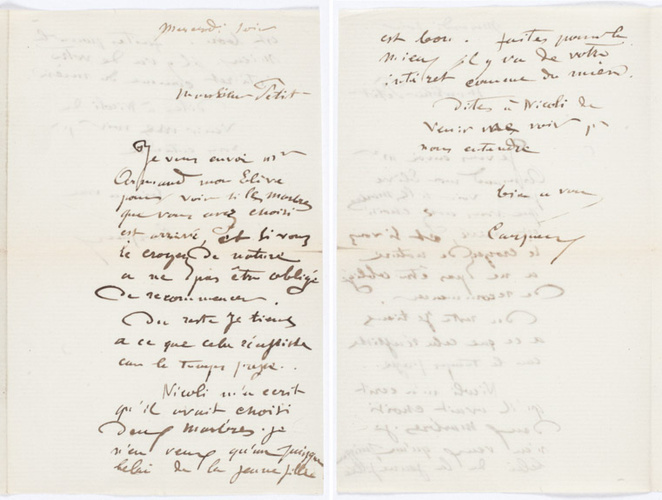 Mercredi soir
Monsieur Petit
Je vous envoi mr
Armand mon Elève
pour voir si les marbres
que vous avez choisi
est arrivé, et si vous
le croyez de nature
a ne pas être obligé
de recommencer.
Du reste Je tiens
a ce que cela réussisse
car le temps presse.
Nicoli m'a ecrit
qu'il avait choisi
deux marbres. je
n'en veux qu'un puisque
celui de la jeune fille
est bon. faites pour le
mieux il y va de votre
intéret comme du mien.
Dites à Nicoli de
venir me voir pr
nous entendre
bien a vous
Carpeaux